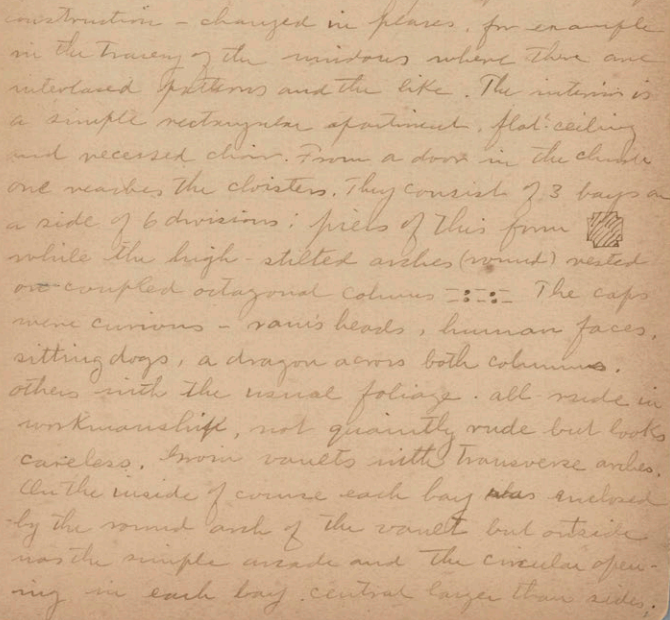 construction - changed in places, for example
in the tracery of the windows where there are
interlaced patterns and the like. The interior is
a simple rectangular apartment, flat ceiling
and recessed choir. From a door in the church
one reaches the cloisters. They consist of 3 bays on
a side of 6 divisions; piers of this form
while the high-stilted arches (round) rested
on coupled octagonal columns The caps
were curious - ram's heads, human faces,
sitting dogs, a dragon across both columns.
others with the usual foliage. all rude in
workmanship, not quaintly rude but looks
careless. Groin vaults with transverse arches.
On the inside of course each bay was enclosed
by the round arch of the vault but outside
was the simple arcade and the circular open-
ing in each bay central larger than sides.